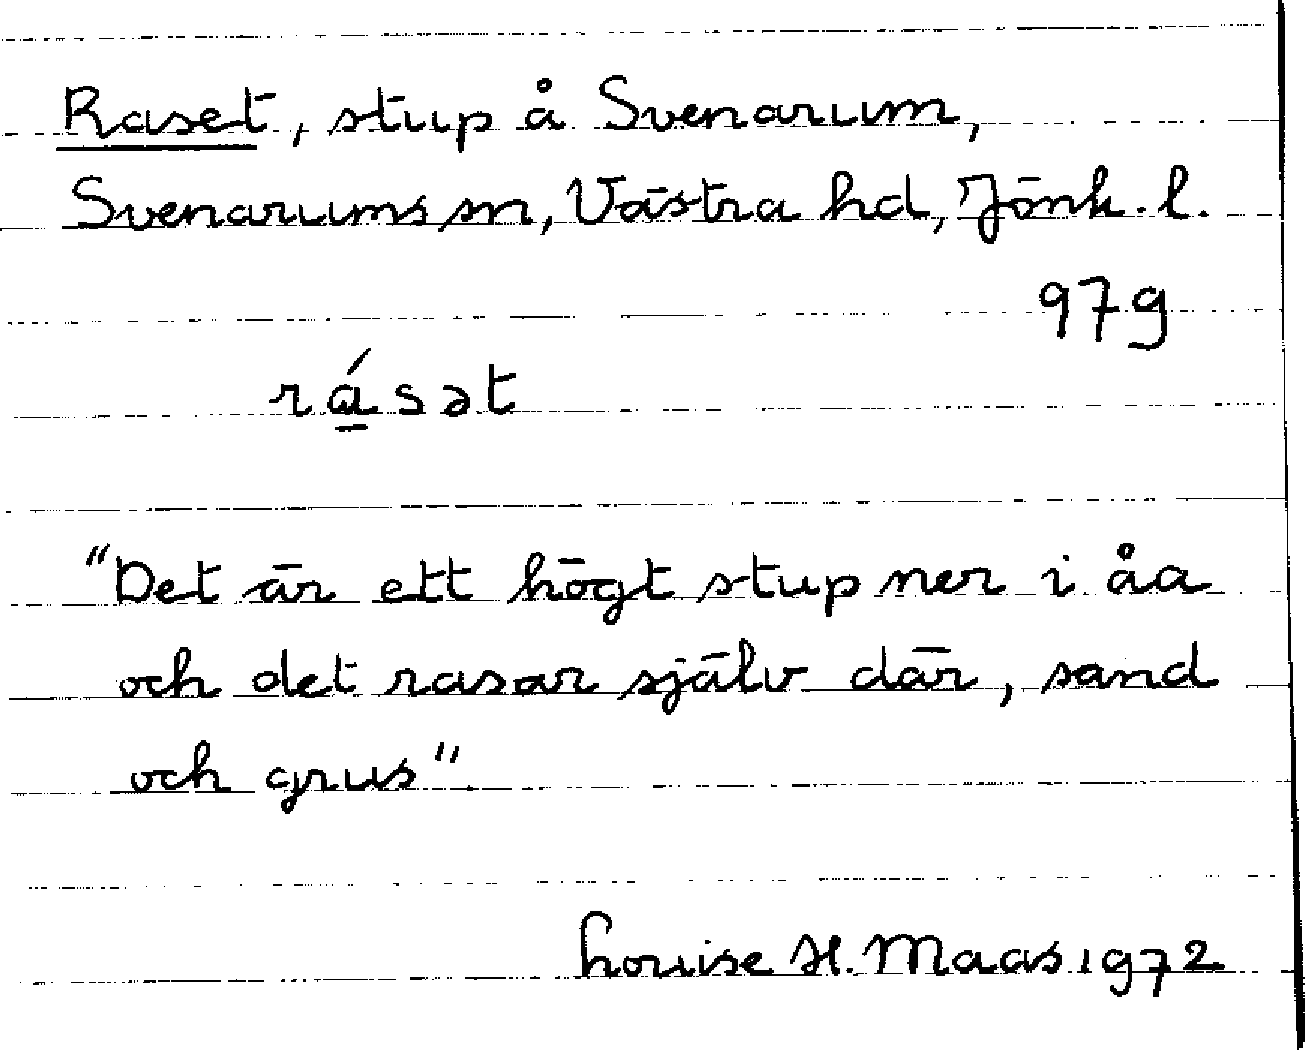 Raset, stup å Svenarum,
Svenarums sn, Västra hd, Jönk. l.
979
rá̱sət
"Det är ett högt stup ner i åa
och det rasar själv där, sand
och grus"
Louise H. Maas 1972